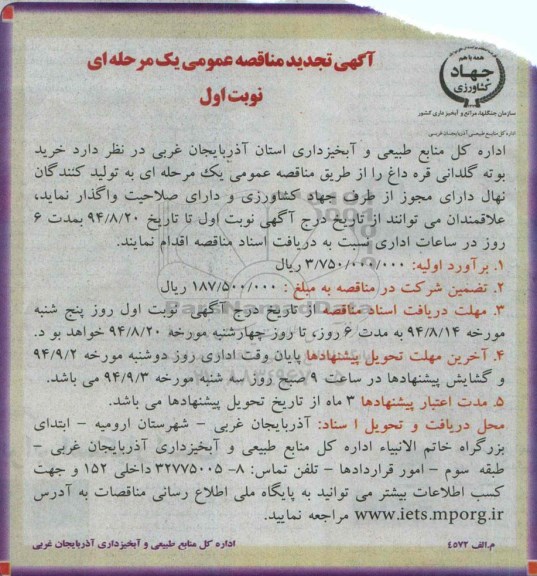 همه با هم
جهاد
کشاورزی
سازمان جنگلها، مراتع و آبخیزداری کشور
اداره کل منابع طبیعی آذربایجان غربی
آگهی تجدید مناقصه عمومی یک مرحله ای
نوبت اول
اداره کل منابع طبیعی و آبخیزداری استان آذربایجان غربی در نظر دارد خرید
بوته گلدانی قره داغ را از طریق مناقصه عمومی یک مرحله ای به تولید کنندگان
نهال دارای مجوز از طرف جهاد کشاورزی و دارای صلاحیت واگذار نماید،
علاقمندان می توانند از تاریخ درج آگهی نوبت اول تا تاریخ ۹۴/۸/۲۰ بمدت ۶
روز در ساعات اداری نسبت به دریافت اسناد مناقصه اقدام نمایند.
۱. برآورد اولیه: ۳/۷۵۰/۰۰۰/۰۰۰ ریال
۲. تضمین شرکت در مناقصه به مبلغ : ۱۸۷/۵۰۰/۰۰۰ ریال
۳. مهلت دریافت اسناد مناقصه از تاریخ درج آگهی نوبت اول روز پنج شنبه
مورخه ۹۴/۸/۱۴ به مدت ۶ روز، تا روز چهارشنبه مورخه ۹۴/۸/۲۰ خواهد بو د.
۴. آخرین مهلت تحویل پیشنهادها پایان وقت اداری روز دوشنبه مورخه ۹۴/۹/۲
و گشایش پیشنهادها در ساعت ۹ صبح روز سه شنبه مورخه ۹۴/۹/۳ می باشد.
۵. مدت اعتبار پیشنهادها ۳ ماه از تاریخ تحویل پیشنهادها می باشد.
محل دریافت و تحویل ا سناد: آذربایجان غربی – شهرستان ارومیه – ابتدای
بزرگراه خاتم الانبیاء اداره کل منابع طبیعی و آبخیزداری آذربایجان غربی –
طبقه سوم – امور قراردادها – تلفن تماس: ۸– ۳۲۷۷۵۰۰۵ داخلی ۱۵۲ و جهت
کسب اطلاعات بیشتر می توانید به پایگاه ملی اطلاع رسانی مناقصات به آدرس
www.iets.mporg.ir مراجعه نمایید.
م.الف ۴۵۷۲
اداره کل منابع طبیعی و آبخیزداری آذربایجان غربی